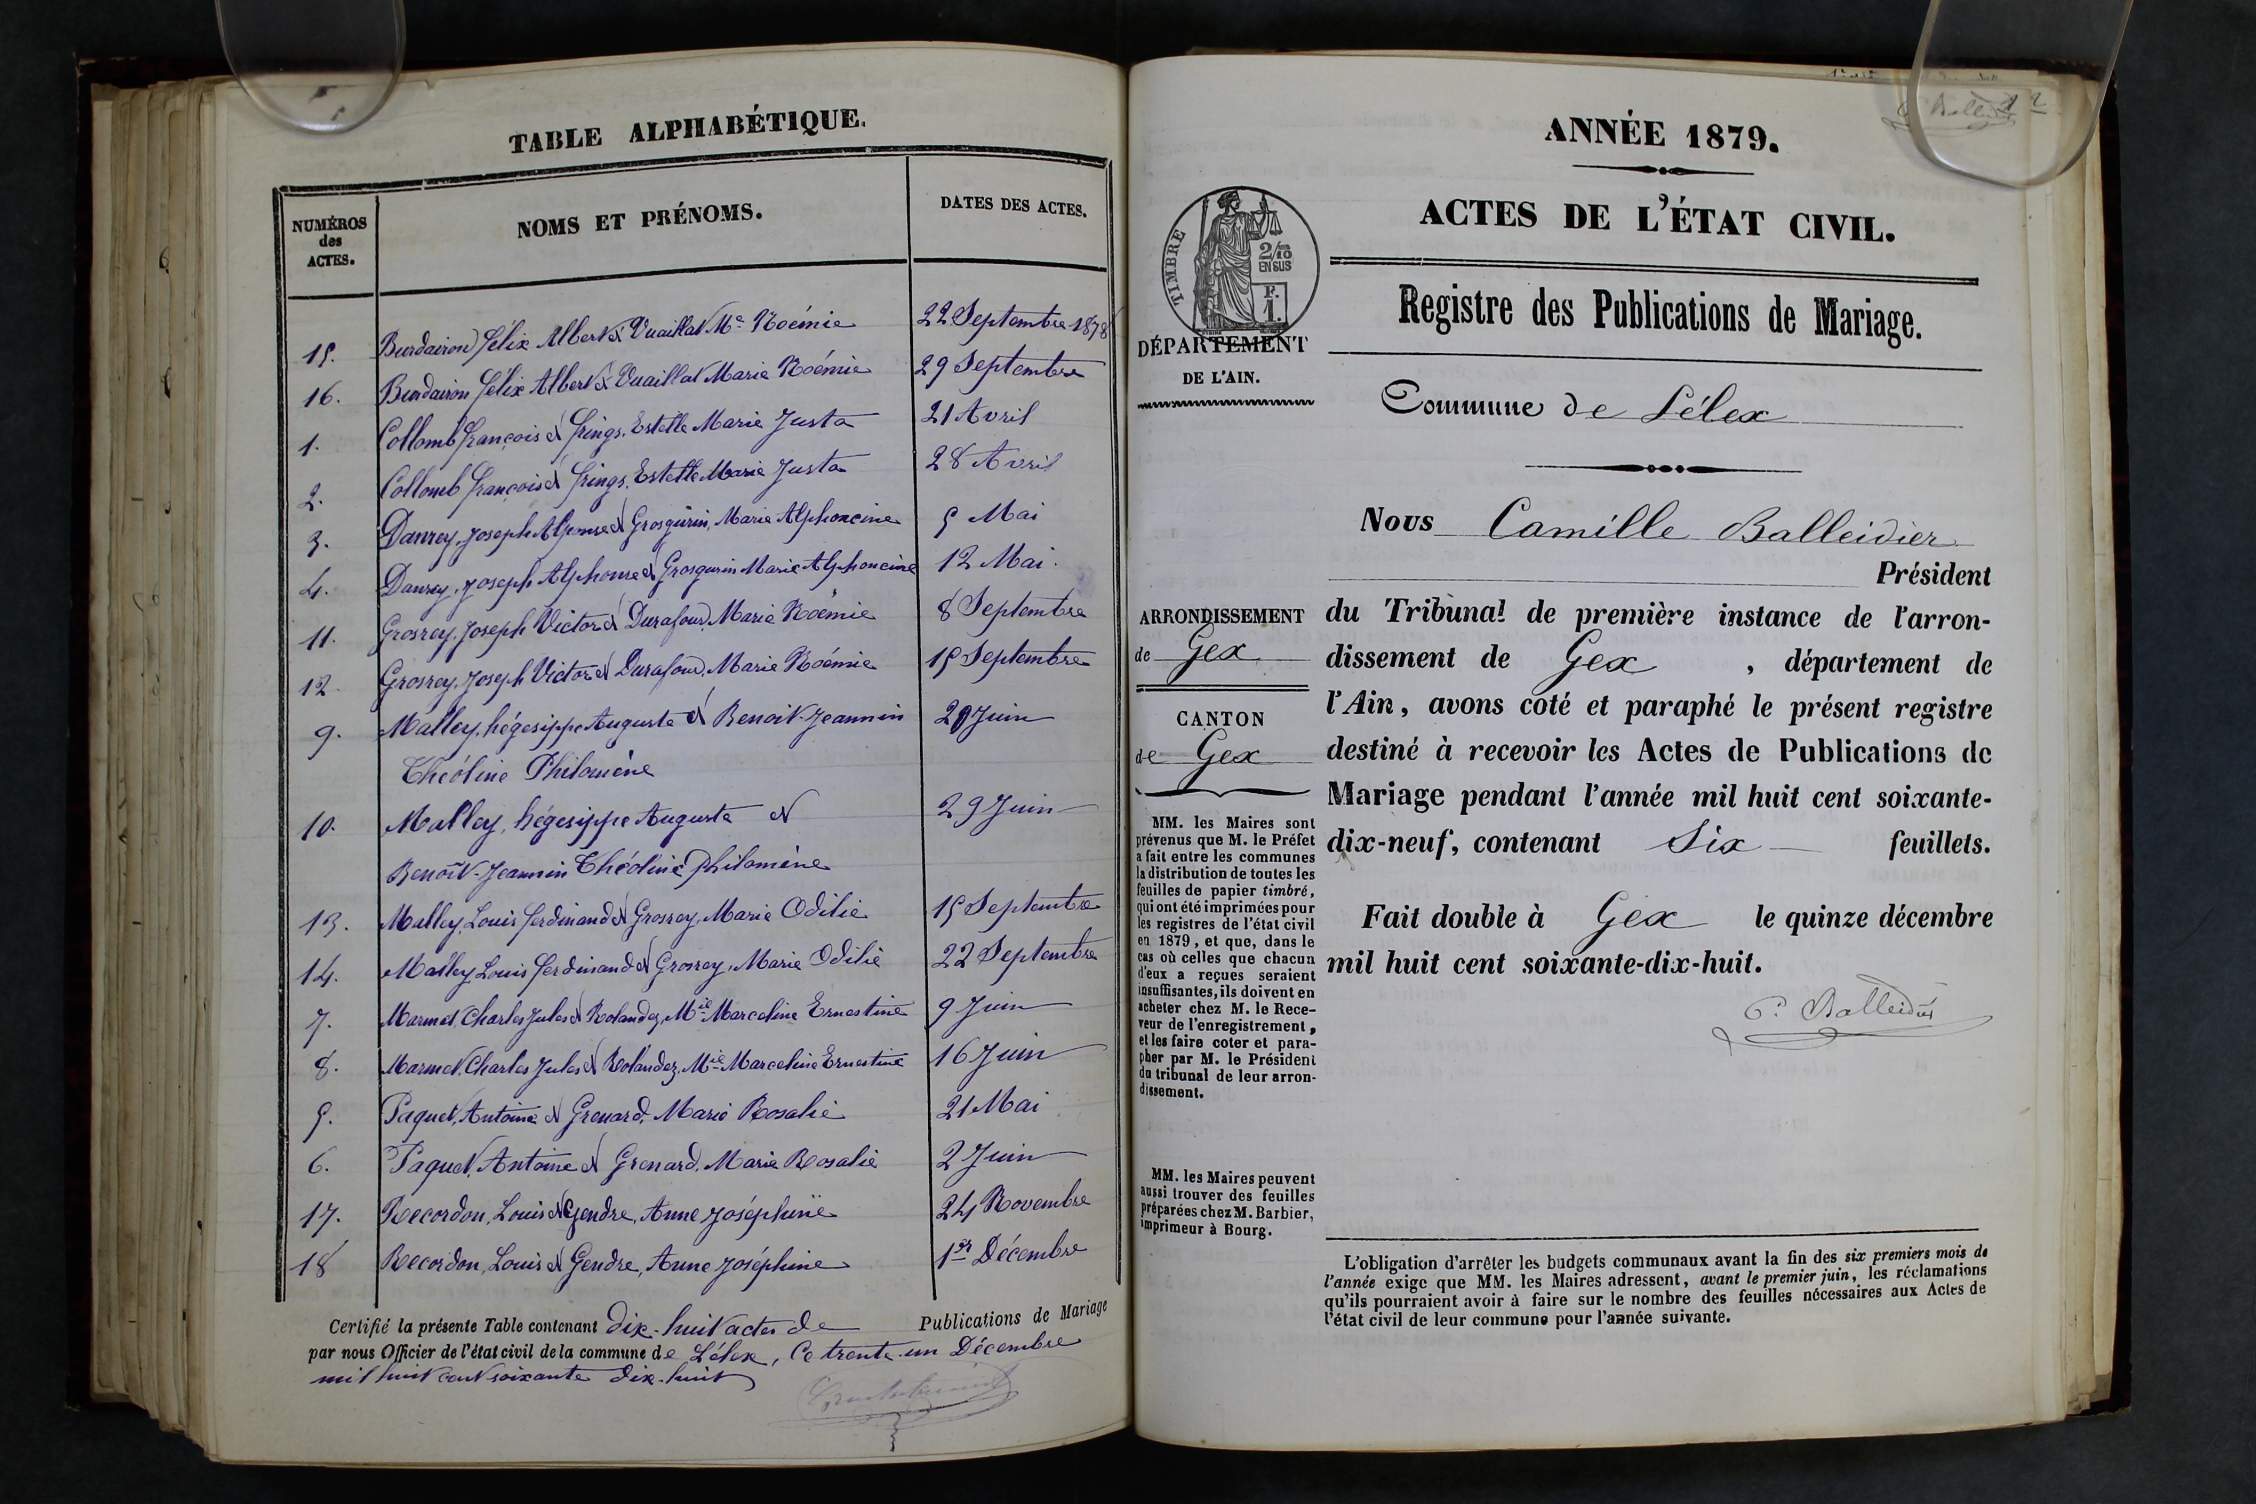 TABLE ALPHABÉTIQUE.
NUMÉROS
des
ACTES.
NOMS ET PRÉNOMS.
DATES DES ACTES.
15. Burdairon Félix Albert & Vuaillat Me Noémie 22 Septembre 1878
16. Burdairon Félix Albert & Vuaillat Marie Noémie 29 Septembre
1. Collomb François et Frings, Estelle Marie Justa 21 Avril
2. Collomb François et Frings, Estelle Marie Justa 28 Avril
3. Danrey, Joseph Alphonse et Grosgurin, Marie Alphoncine 5 Mai
4. Danrey, Joseph Alphonse et Grosgurin Marie Alphoncine 12 Mai.
11. Grosrey, Joseph Victor et Durafour, Marie Noémie 8 Septembre
12. Grosrey, Joseph Victor et Durafour, Marie Noémie 15 Septembre
9. Malley, hégesippe Auguste et Benoit-Jeannin Juin
Théoline Philomène
10. Malley, hégesippe Auguste et 29 Juin
Benoît-Jeannin Théoline Philomène
13. Malley, Louis Ferdinand et Grosrey, Marie Odilie 15 Septembre
14. Malley Louis Ferdinand et Grosrey, Marie Odilie 22 Septembre
7. Marmet, Charles Jules et Rolandez, Mie Marceline Ernestine 9 Juin
8. Marmet, Charles Jules et Rolandez, Mie Marceline Ernestine 16 Juin
5. Paquet, Antoine et Grenard, Marie Rosalie 21 Mai
6. Paquet, Antoine et Grenard, Marie Rosalie 2 Juin
17. Recordon, Louis et Gendre, Anne Joséphine 24 Novembre
18 Recordon, Louis et Gendre, Anne Joséphine 1er Décembre
Certifié la présente Table contenant dix-huit actes de Publications de Mariage
par nous Officier de l'état civil de la commune de Lélex, Ce trente-un Décembre
mil huit cent soixante dix-huit
2
ANNÉE 1879.
ACTES DE L'ÉTAT CIVIL.
TIMBRE
2/10
EN SUS
F.
1.
Registre des Publications de Mariage.
DÉPARTEMENT
DE L'AIN.
Commune de Lélex
Nous Camille Balleidier
Président
ARRONDISSEMENT
de Gex
CANTON
de Gex
du Tribunal de première instance de l'arron-
dissement de Gex , département de
l'Ain, avons coté et paraphé le présent registre
destiné à recevoir les Actes de Publications de
Mariage pendant l'année mil huit cent soixante-
dix-neuf, contenant Six feuillets.
Fait double à Gex le quinze décembre
mil huit cent soixante-dix-huit.
C. Balleidier
MM. les Maires sont
prévenus que M. le Préfet
a fait entre les communes
la distribution de toutes les
feuilles de papier timbré,
qui ont été imprimées pour
les registres de l'état civil
en 1879, et que, dans le
cas où celles que chacun
d'eux a reçues seraient
insuffisantes, ils doivent en
acheter chez M. le Rece-
veur de l'enregistrement,
et les faire coter et para-
pher par M. le Président
du tribunal de leur arron-
dissement.
MM. les Maires peuvent
aussi trouver des feuilles
préparées chez M. Barbier,
imprimeur à Bourg.
L'obligation d'arrêter les budgets communaux avant la fin des six premiers mois de
l'année exige que MM. les Maires adressent, avant le premier juin, les réclamations
qu'ils pourraient avoir à faire sur le nombre des feuilles nécessaires aux Actes de
l'état civil de leur commune pour l'année suivante.